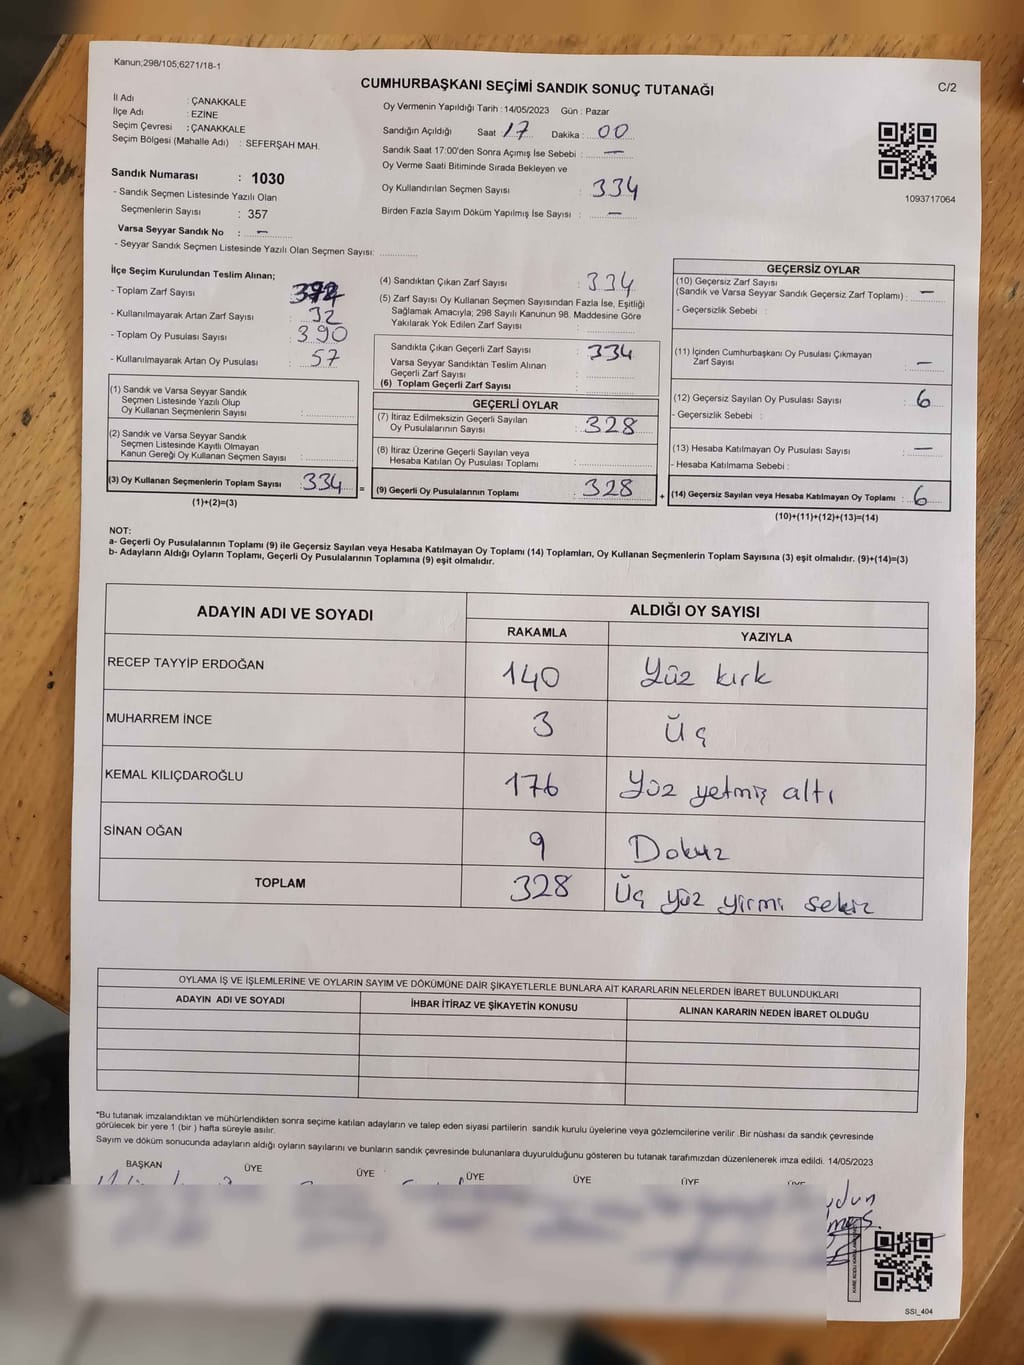 Kanun;298/105,6271/18-1
CUMHURBAŞKANI SEÇİMİ SANDIK SONUÇ TUTANAĞI
C/2
İl Adı : ÇANAKKALE
İlçe Adı : EZİNE
Seçim Çevresi : ÇANAKKALE
Seçim Bölgesi (Mahalle Adı) : SEFERŞAH MAH.
Sandık Numarası : 1030
- Sandık Seçmen Listesinde Yazılı Olan
Seçmenlerin Sayısı : 357
Varsa Seyyar Sandık No : —
- Seyyar Sandık Seçmen Listesinde Yazılı Olan Seçmen Sayısı:
Oy Vermenin Yapıldığı Tarih : 14/05/2023 Gün : Pazar
Sandığın Açıldığı Saat : 17 Dakika : 00
Sandık Saat 17:00'den Sonra Açımış İse Sebebi : —
Oy Verme Saati Bitiminde Sırada Bekleyen ve
Oy Kullandırılan Seçmen Sayısı : 334
Birden Fazla Sayım Döküm Yapılmış İse Sayısı : —
1093717064
İlçe Seçim Kurulundan Teslim Alınan;
- Toplam Zarf Sayısı :
- Kullanılmayarak Artan Zarf Sayısı : 32
- Toplam Oy Pusulası Sayısı : 390
- Kullanılmayarak Artan Oy Pusulası : 57
(1) Sandık ve Varsa Seyyar Sandık
Seçmen Listesinde Yazılı Olup
Oy Kullanan Seçmenlerin Sayısı :
(2) Sandık ve Varsa Seyyar Sandık
Seçmen Listesinde Kayıtlı Olmayan
Kanun Gereği Oy Kullanan Seçmen Sayısı :
(3) Oy Kullanan Seçmenlerin Toplam Sayısı : 334 =
(1)+(2)=(3)
(4) Sandıktan Çıkan Zarf Sayısı : 334
(5) Zarf Sayısı Oy Kullanan Seçmen Sayısından Fazla İse, Eşitliği
Sağlamak Amacıyla; 298 Sayılı Kanunun 98. Maddesine Göre
Yakılarak Yok Edilen Zarf Sayısı :
Sandıkta Çıkan Geçerli Zarf Sayısı : 334
Varsa Seyyar Sandıktan Teslim Alınan
Geçerli Zarf Sayısı :
(6) Toplam Geçerli Zarf Sayısı :
GEÇERLİ OYLAR
(7) İtiraz Edilmeksizin Geçerli Sayılan
Oy Pusulalarının Sayısı : 328
(8) İtiraz Üzerine Geçerli Sayılan veya
Hesaba Katılan Oy Pusulası Toplamı :
(9) Geçerli Oy Pusulalarının Toplamı : 328 +
GEÇERSİZ OYLAR
(10) Geçersiz Zarf Sayısı
(Sandık ve Varsa Seyyar Sandık Geçersiz Zarf Toplamı) : —
- Geçersizlik Sebebi :
(11) İçinden Cumhurbaşkanı Oy Pusulası Çıkmayan
Zarf Sayısı : —
(12) Geçersiz Sayılan Oy Pusulası Sayısı : 6
- Geçersizlik Sebebi :
(13) Hesaba Katılmayan Oy Pusulası Sayısı : —
- Hesaba Katılmama Sebebi :
(14) Geçersiz Sayılan veya Hesaba Katılmayan Oy Toplamı : 6
(10)+(11)+(12)+(13)=(14)
NOT:
a- Geçerli Oy Pusulalarının Toplamı (9) ile Geçersiz Sayılan veya Hesaba Katılmayan Oy Toplamı (14) Toplamları, Oy Kullanan Seçmenlerin Toplam Sayısına (3) eşit olmalıdır. (9)+(14)=(3)
b- Adayların Aldığı Oyların Toplamı, Geçerli Oy Pusulalarının Toplamına (9) eşit olmalıdır.
ADAYIN ADI VE SOYADI ALDIĞI OY SAYISI
RAKAMLA YAZIYLA
RECEP TAYYİP ERDOĞAN 140 Yüz kırk
MUHARREM İNCE 3 Üç
KEMAL KILIÇDAROĞLU 176 Yüz yetmiş altı
SİNAN OĞAN 9 Dokuz
TOPLAM 328 Üç yüz yirmi sekiz
OYLAMA İŞ VE İŞLEMLERİNE VE OYLARIN SAYIM VE DÖKÜMÜNE DAİR ŞİKAYETLERLE BUNLARA AİT KARARLARIN NELERDEN İBARET BULUNDUKLARI
ADAYIN ADI VE SOYADI İHBAR İTİRAZ VE ŞİKAYETİN KONUSU ALINAN KARARIN NEDEN İBARET OLDUĞU
*Bu tutanak imzalandıktan ve mühürlendikten sonra seçime katılan adayların ve talep eden siyasi partilerin sandık kurulu üyelerine veya gözlemcilerine verilir .Bir nüshası da sandık çevresinde
görülecek bir yere 1 (bir ) hafta süreyle asılır.
Sayım ve döküm sonucunda adayların aldığı oyların sayılarını ve bunların sandık çevresinde bulunanlara duyurulduğunu gösteren bu tutanak tarafımızdan düzenlenerek imza edildi. 14/05/2023
BAŞKAN ÜYE ÜYE ÜYE ÜYE ÜYE ÜYE
SSI_404